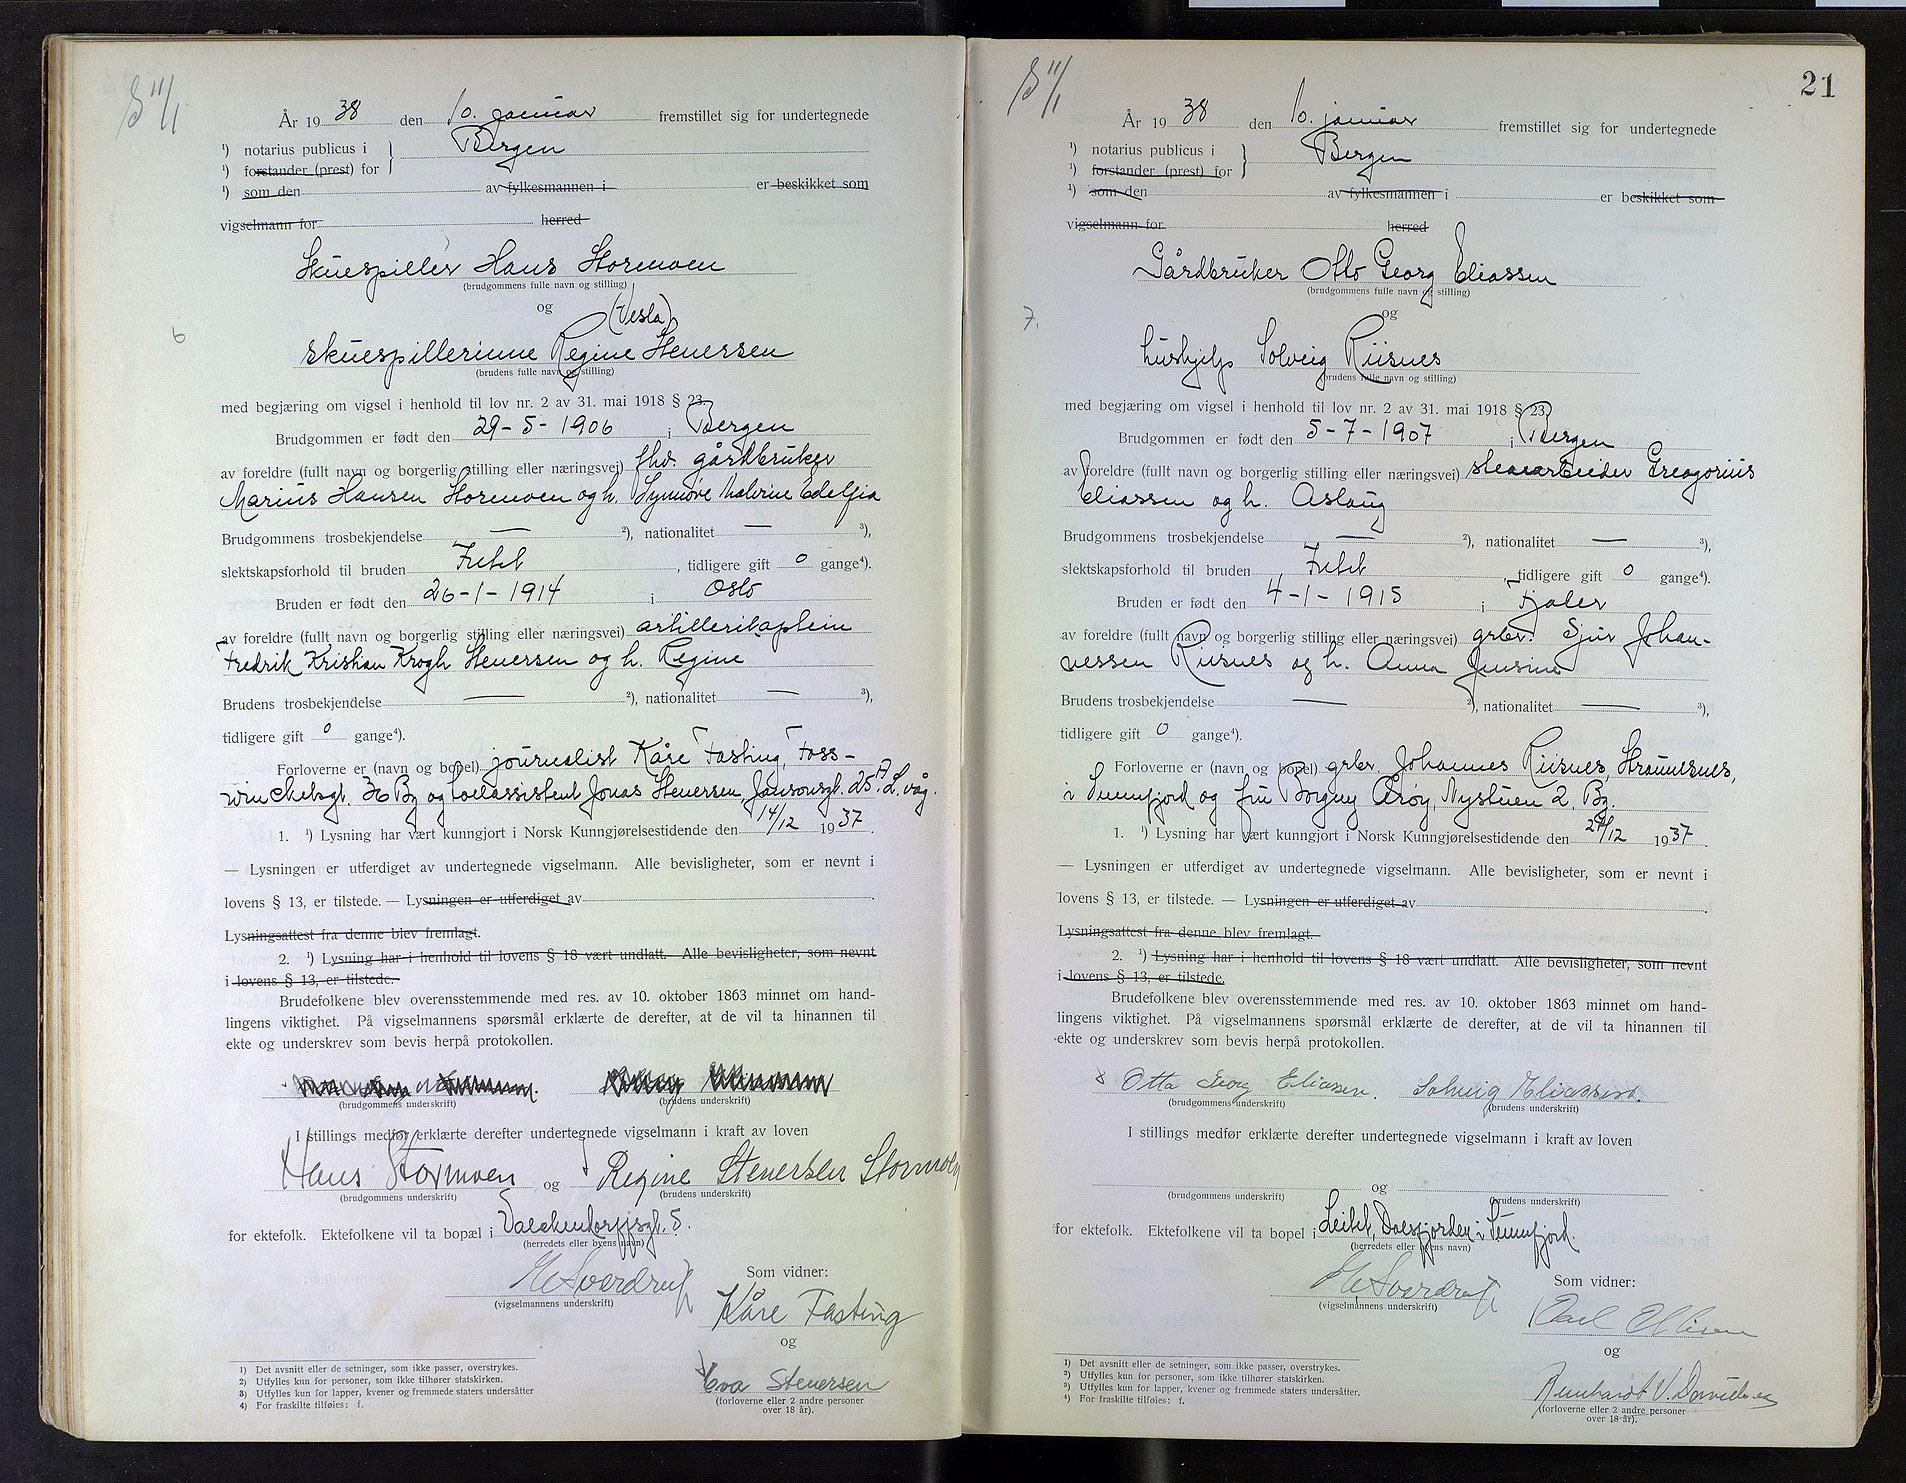 S 11/1
År 1938 den 10. januar fremstillet sig for undertegnede
¹) notarius publicus i } Bergen
¹) forstander (prest) for
¹) som den av fylkesmannen i er beskikket som
vigselmann for herred
Skuespiller Hans Stormoen
(brudgommens fulle navn og stilling)
og (Vesla)
6
skuespillerinne Regine Stenersen
(brudens fulle navn og stilling)
med begjæring om vigsel i henhold til lov nr. 2 av 31. mai 1918 § 23.
Brudgommen er født den 29-5-1906 i Bergen
av foreldre (fullt navn og borgerlig stilling eller næringsvei) fhv. gårdbruker
Marius Hansen Stormoen og h. Synnøve Malerine Edelfia
Brudgommens trosbekjendelse — ²), nationalitet — ³),
slektskapsforhold til bruden Intet, tidligere gift 0 gange⁴).
Bruden er født den 26-1-1914 i Oslo
av foreldre (fullt navn og borgerlig stilling eller næringsvei) artillerikaptein
Fredrik Kristian Krogh Stenersen og h. Regine
Brudens trosbekjendelse — ²), nationalitet — ³),
tidligere gift 0 gange⁴).
Forloverne er (navn og bopel) journalist Kåre Fasting, Foss-
winckelsgt. 36 Bg og tollassistent Jonas Stenersen, Jansonsgt. 25A L.våg.
1. ¹) Lysning har vært kunngjort i Norsk Kunngjørelsestidende den 14/12 1937.
— Lysningen er utferdiget av undertegnede vigselmann. Alle bevisligheter, som er nevnt i
lovens § 13, er tilstede. — Lysningen er utferdiget av
Lysningsattest fra denne blev fremlagt.
2. ¹) Lysning har i henhold til lovens § 18 vært undlatt. Alle bevisligheter, som nevnt
i lovens § 13, er tilstede.
Brudefolkene blev overensstemmende med res. av 10. oktober 1863 minnet om hand-
lingens viktighet. På vigselmannens spørsmål erklærte de derefter, at de vil ta hinannen til
ekte og underskrev som bevis herpå protokollen.
(brudgommens underskrift) (brudens underskrift)
I stillings medfør erklærte derefter undertegnede vigselmann i kraft av loven
Hans Stormoen og Regine Stenersen Stormoen
(brudgommens underskrift) (brudens underskrift)
for ektefolk. Ektefolkene vil ta bopæl i Valckendorffsgt. 5.
(herredets eller byens navn)
Sverdrup Som vidner:
(vigselmannens underskrift) Kåre Fasting
og
Eva Stenersen
(forloverne eller 2 andre personer
over 18 år).
¹) Det avsnitt eller de setninger, som ikke passer, overstrykes.
²) Utfylles kun for personer, som ikke tilhører statskirken.
³) Utfylles kun for lapper, kvener og fremmede staters undersåtter
⁴) For fraskilte tilføies: f.
21
S 11/1
År 1938 den 10. januar fremstillet sig for undertegnede
¹) notarius publicus i } Bergen
¹) forstander (prest) for
¹) som den av fylkesmannen i er beskikket som
vigselmann for herred
Gårdbruker Otto Georg Eliassen
(brudgommens fulle navn og stilling)
og
7.
hushjelp Solveig Riisnes
(brudens fulle navn og stilling)
med begjæring om vigsel i henhold til lov nr. 2 av 31. mai 1918 § 23.
Brudgommen er født den 5-7-1907 i Bergen
av foreldre (fullt navn og borgerlig stilling eller næringsvei) stenarbeider Greagorius
Eliassen og h. Aslaug
Brudgommens trosbekjendelse — ²), nationalitet — ³),
slektskapsforhold til bruden Intet, tidligere gift 0 gange⁴).
Bruden er født den 4-1-1915 i Fjaler
av foreldre (fullt navn og borgerlig stilling eller næringsvei) grbr. Sjur Johan-
nessen Riisnes og h. Anna Jensine
Brudens trosbekjendelse — ²), nationalitet — ³),
tidligere gift 0 gange⁴).
Forloverne er (navn og bopel) grbr. Johannes Riisnes, Straumsnes,
i Sunnfjord og fru Borgny Årøy, Nystuen 2, Bg.
1. ¹) Lysning har vært kunngjort i Norsk Kunngjørelsestidende den /12 1937.
— Lysningen er utferdiget av undertegnede vigselmann. Alle bevisligheter, som er nevnt i
lovens § 13, er tilstede. — Lysningen er utferdiget av
Lysningsattest fra denne blev fremlagt.
2. ¹) Lysning har i henhold til lovens § 18 vært undlatt. Alle bevisligheter, som nevnt
i lovens § 13, er tilstede.
Brudefolkene blev overensstemmende med res. av 10. oktober 1863 minnet om hand-
lingens viktighet. På vigselmannens spørsmål erklærte de derefter, at de vil ta hinannen til
ekte og underskrev som bevis herpå protokollen.
x Otto Georg Eliassen. Solveig Eliassen.
(brudgommens underskrift) (brudens underskrift)
I stillings medfør erklærte derefter undertegnede vigselmann i kraft av loven
og
(brudgommens underskrift) (brudens underskrift)
for ektefolk. Ektefolkene vil ta bopel i Leitet, Dalsfjorden i Sunnfjord.
(herredets eller byens navn)
Sverdrup Som vidner:
(vigselmannens underskrift) Carl
og
Reinhardt V. Davidsen
(forloverne eller 2 andre personer
over 18 år).
¹) Det avsnitt eller de setninger, som ikke passer, overstrykes.
²) Utfylles kun for personer, som ikke tilhører statskirken.
³) Utfylles kun for lapper, kvener og fremmede staters undersåtter.
⁴) For fraskilte tilføies: f.